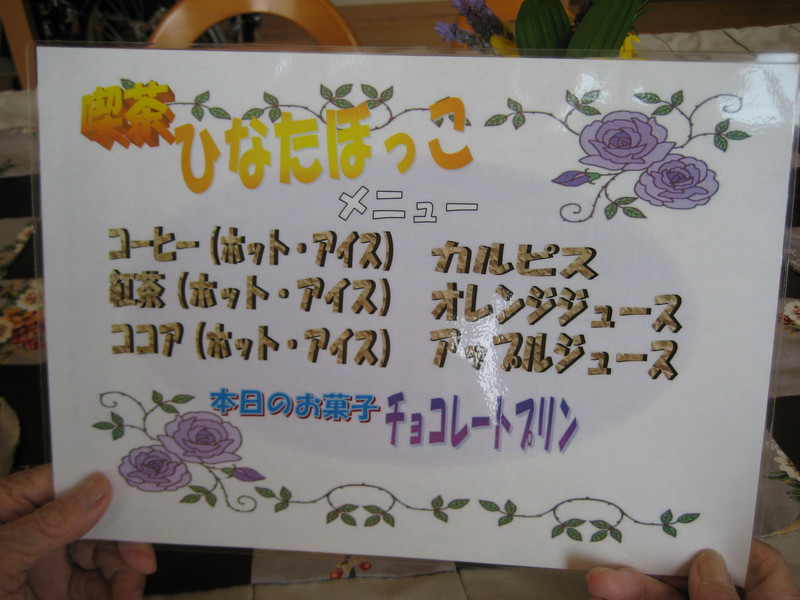 喫茶 ひなたぼっこ
メニュー
コーヒー(ホット・アイス)
紅茶(ホット・アイス)
ココア(ホット・アイス)
カルピス
オレンジジュース
アップルジュース
本日のお菓子 チョコレートプリン